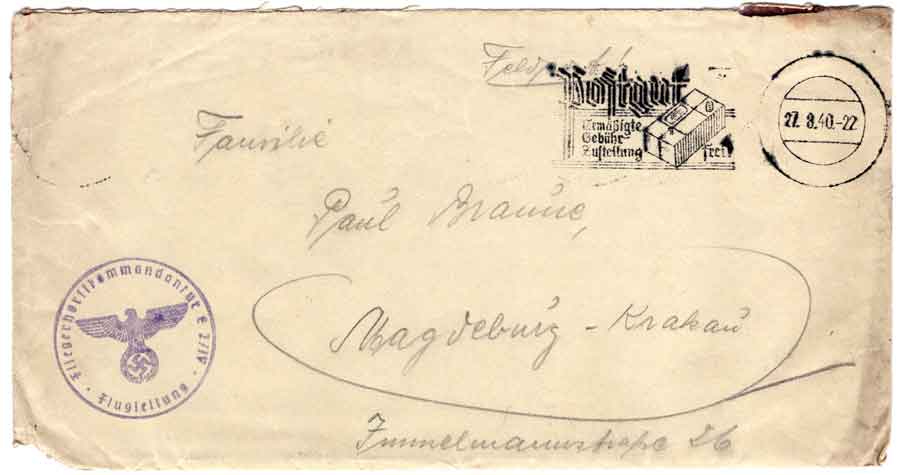 Feldpost!
Postgut
Ermäßigte
Gebühr
Zustellung frei!
27.8.40.-22
Familie
Paul Braune,
Magdeburg-Krakau
Immelmannstraße 26
Fliegerhorstkommandantur E 2/IV
· Flugleitung ·